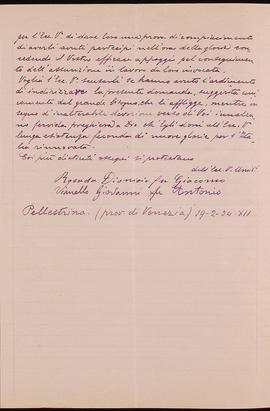 per l'Ecc. V. di dare loro una prova di compiacimento
di averli avuti partecipi nell'ora della gloria con-
cedendo il Vostro efficace appoggio pel conseguimento
dell'assunzione in lavoro da loro invocata.
Voglia l'Ecc. V. scusarli se hanno avuto l'ardimento
di indirizzare la presente domanda, suggerita uni-
camente dal grande bisogno che li affligge, mentre in
segno di inalterabile devozione verso di Voi innalza-
no fervida preghiera a Dio che Egli doni all'Ecc. V.
lunga esistenza feconda di nuove glorie per l'Ita-
lia rinnovata.
Coi più distinti ossequi si protestano
dell'Ecc. V. Umil.
Rosada Dionisio fu Giacomo
Vianello Giovanni fu Antonio
Pellestrina (prov. di Venezia) 19-2-34. XII